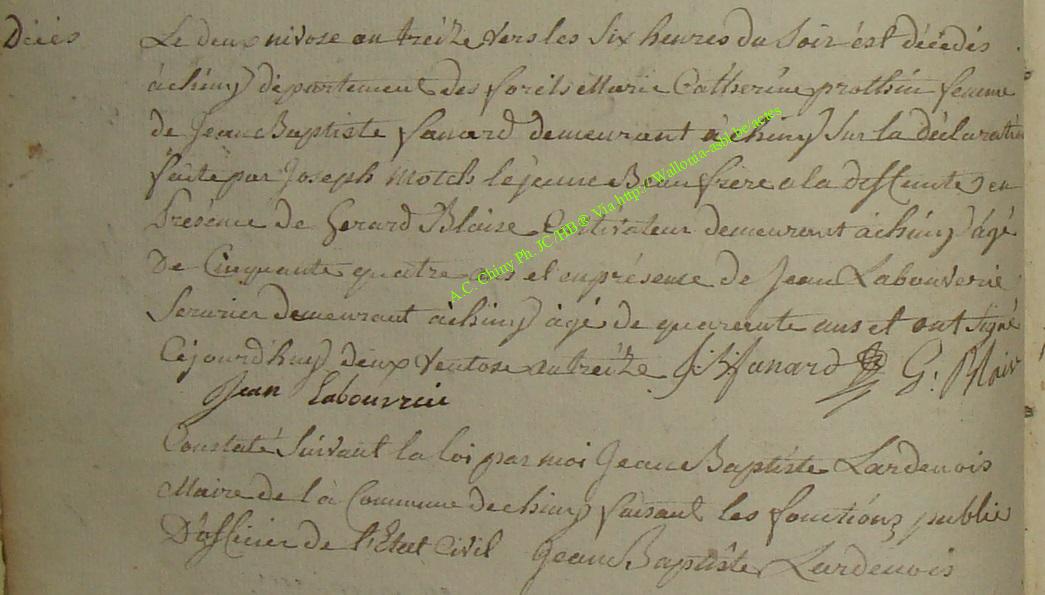 Décés
Le deux nivose an treize vers les Six heures du Soir ést décédés
à chiny département des forêts Marie Cathérine prothin femme
de Jean Baptiste fanard demeurant à chiny Sur la déclaration
faite par Joseph motch le jeune Beau frère a la deffunte en
Présence de Gerard Blaise Cultivateur demeurant à chiny âgé
De Cinquante quatre ans et en présense de Jean Labouverie
Serurier demeurant à chiny âgé de quarente ans et ont Signé
Céjourd'huy deux Ventose an treize J. B. fanard G. Blaise
Jean Labouvrie
Constaté Suivant la loi par moi Jean Baptiste Lardenois
Maire de la Commune de chiny faisant les fonctions public
D'officier de l'Etat Civil Jean Baptiste Lardenois
A.C. Chiny Ph. JC/HB® Via http://Wallonia-asbl.be/actes